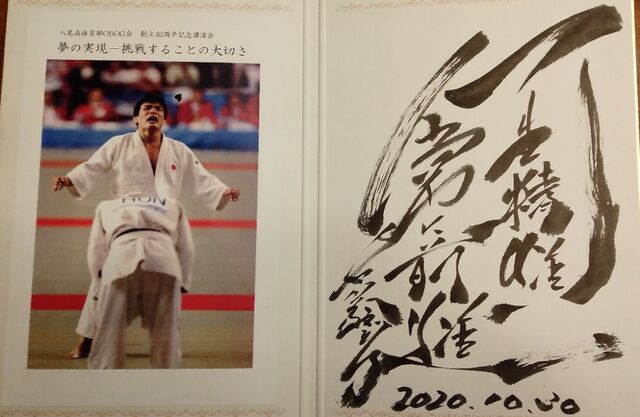 八尾高体育部OBOG会 創立40周年記念講演会
夢の実現－挑戦することの大切さ
HUN
一生精進
常前進
2020.10.30